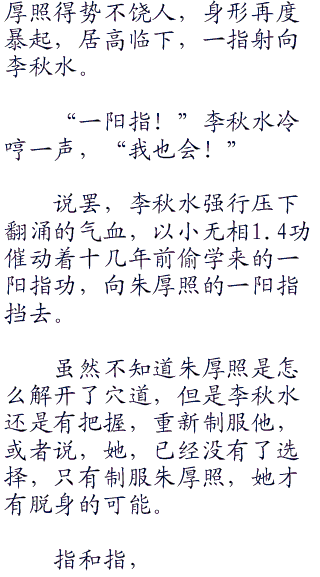 厚照得势不饶人，身形再度
暴起，居高临下，一指射向
李秋水。
“一阳指！”李秋水冷
哼一声，“我也会！”
说罢，李秋水强行压下
翻涌的气血，以小无相1.4功
催动着十几年前偷学来的一
阳指功，向朱厚照的一阳指
挡去。
虽然不知道朱厚照是怎
么解开了穴道，但是李秋水
还是有把握，重新制服他，
或者说，她，已经没有了选
择，只有制服朱厚照，她才
有脱身的可能。
指和指，